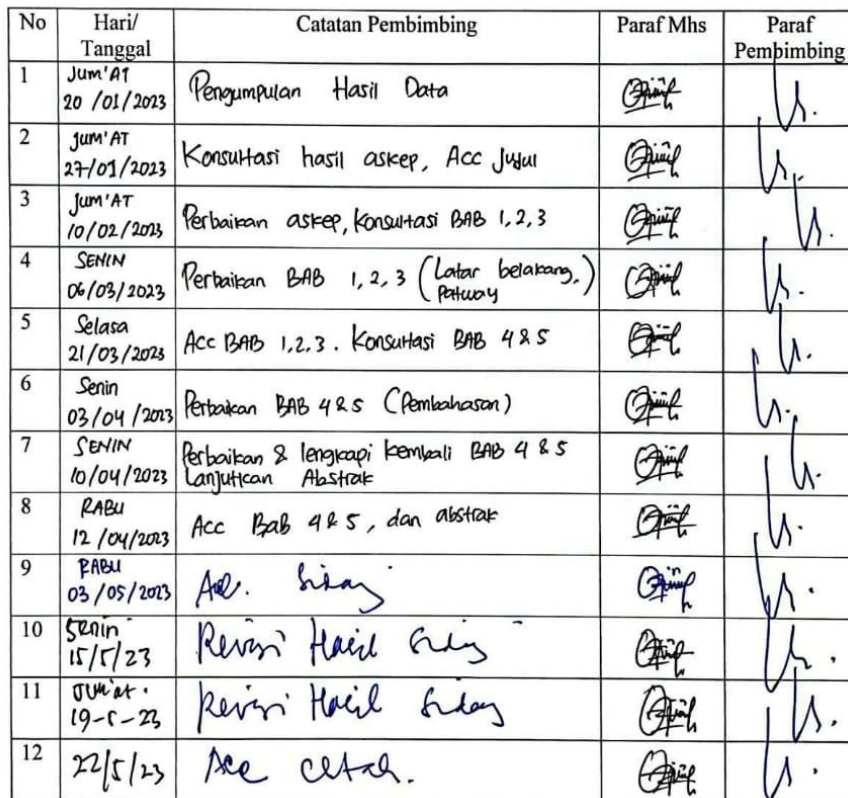 No Hari/ Tanggal Catatan Pembimbing Paraf Mhs Paraf Pembimbing
1 Jum'AT 20/01/2023 Pengumpulan Hasil Data
2 Jum'AT 27/01/2023 Konsultasi hasil askep, Acc Judul
3 Jum'AT 10/02/2023 Perbaikan askep, Konsultasi BAB 1,2,3
4 SENIN 06/03/2023 Perbaikan BAB 1,2,3 (Latar belakang, Patway)
5 Selasa 21/03/2023 Acc BAB 1.2.3. Konsultasi BAB 4 & 5
6 Senin 03/04/2023 Perbaikan BAB 4 & 5 (Pembahasan)
7 SENIN 10/04/2023 Perbaikan & lengkapi kembali BAB 4 & 5 Lanjutkan Abstrak
8 RABU 12/04/2023 Acc Bab 4 & 5, dan abstrak
9 RABU 03/05/2023 Acc. Sidang
10 Senin 15/5/23 Revisi Hasil Sidang
11 Jum'at. 19-5-23 Revisi Hasil Sidang
12 22/5/23 Acc Cetak.